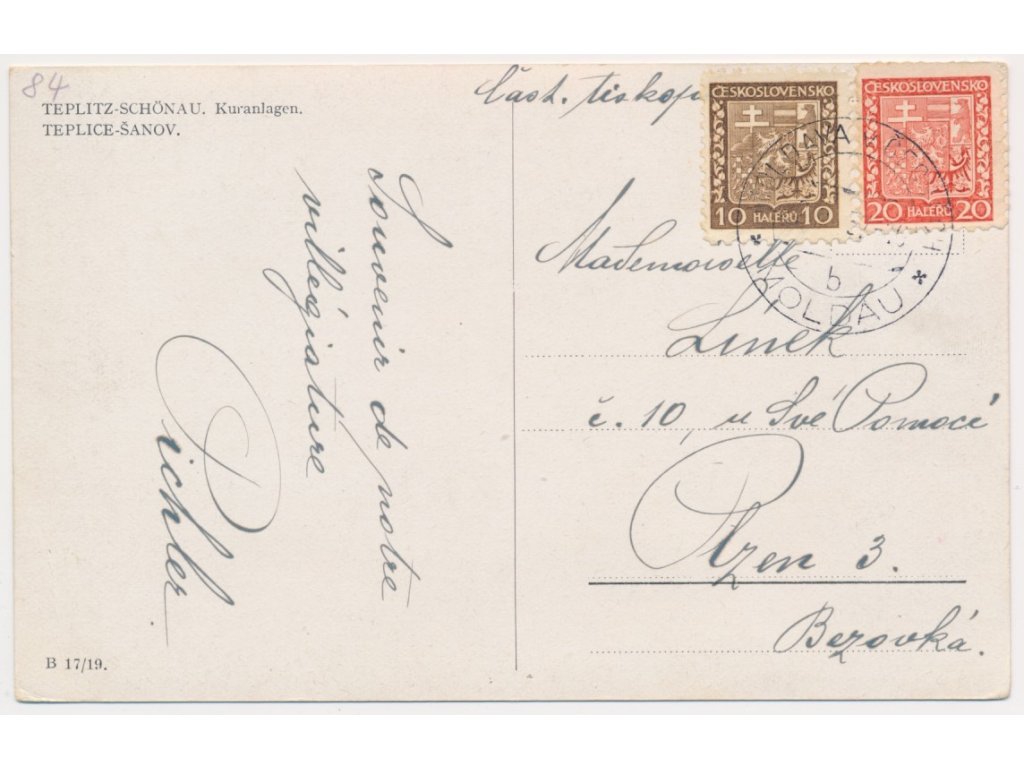 84
TEPLITZ-SCHÖNAU. Kuranlagen.
TEPLICE-ŠANOV.
Část. tiskop
ČESKOSLOVENSKO
10 HALÉŘŮ 10
ČESKOSLOVENSKO
20 HALÉŘŮ 20
MOLDAVA
b
MOLDAU
Souvenir de notre
villégiature
Pichler
Mademoiselle
Linek
č. 10, u Své Pomoci
Plzen 3.
Bezovká.
B 17/19.